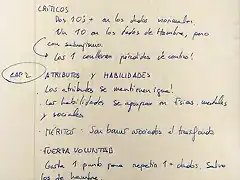 CRÍTICOS
Dos 10's + en los dados normales
Un 10 en los dados de Hambre, pero
con salvajismo.
Los 1 conllevan pérdidas de control.
CAP 2
ATRIBUTOS Y HABILIDADES
Los atributos se mantienen igual.
Las habilidades se agrupan en físicas, mentales
y sociales
- MÉRITOS - Dan bonus asociados al trasfondo
- FUERZA VOLUNTAD
Gasta 1 punto para repetir 1+ dados. Salvo
los de hambre.